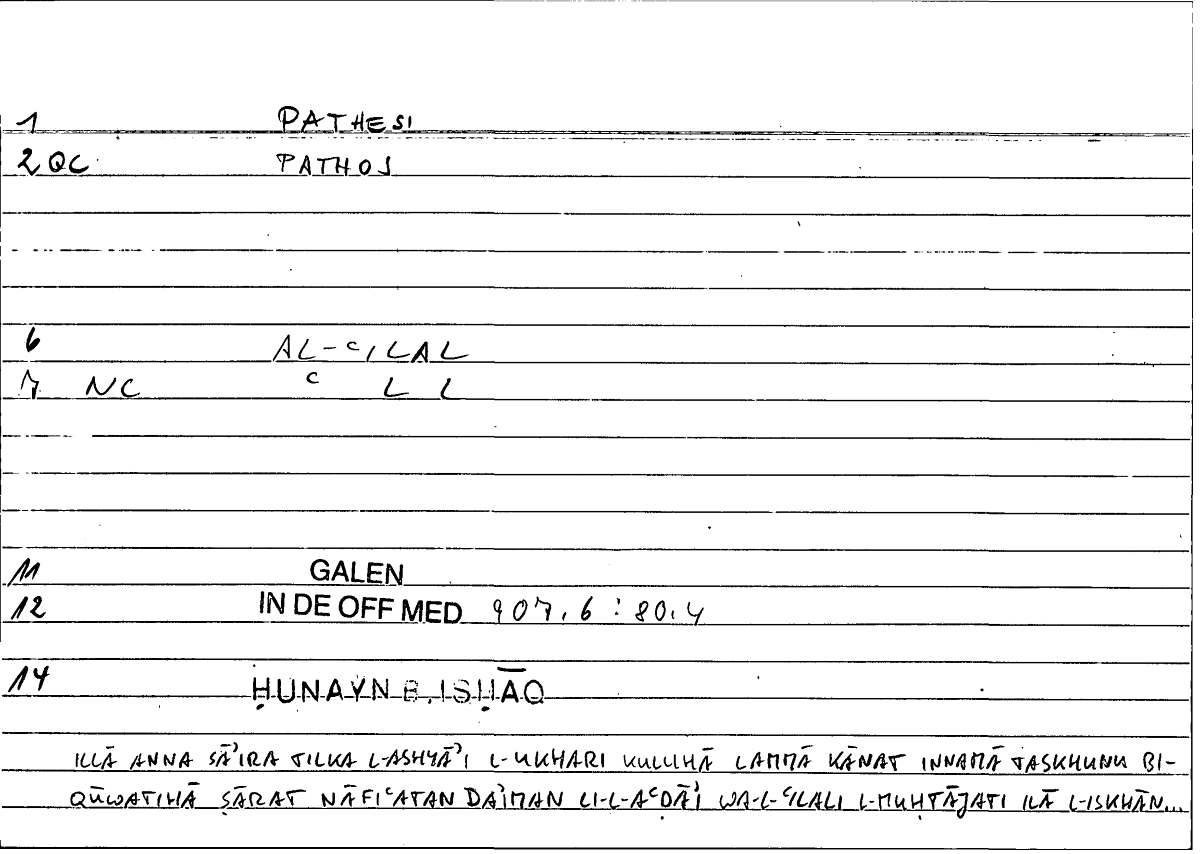 1 PATHESI
2 QC PATHOS
6 AL-ᶜILAL
7 NC ᶜ L L
11 GALEN
12 IN DE OFF MED 907.6 : 80.4
14 ḤUNAYN B. ISḤĀQ
ILLĀ ANNA SĀʾIRA TILKA L-ASHYĀʾI L-UKHARI KULLIHĀ LAMMĀ KĀNAT INNAMĀ TASKHUNU BI-
QŪWATIHĀ ṢĀRAT NĀFIᶜATAN DAʾIMAN LI-L-AᶜḌĀʾI WA-L-ᶜILALI L-MUḤTĀJATI ILĀ L-ISKHĀN...